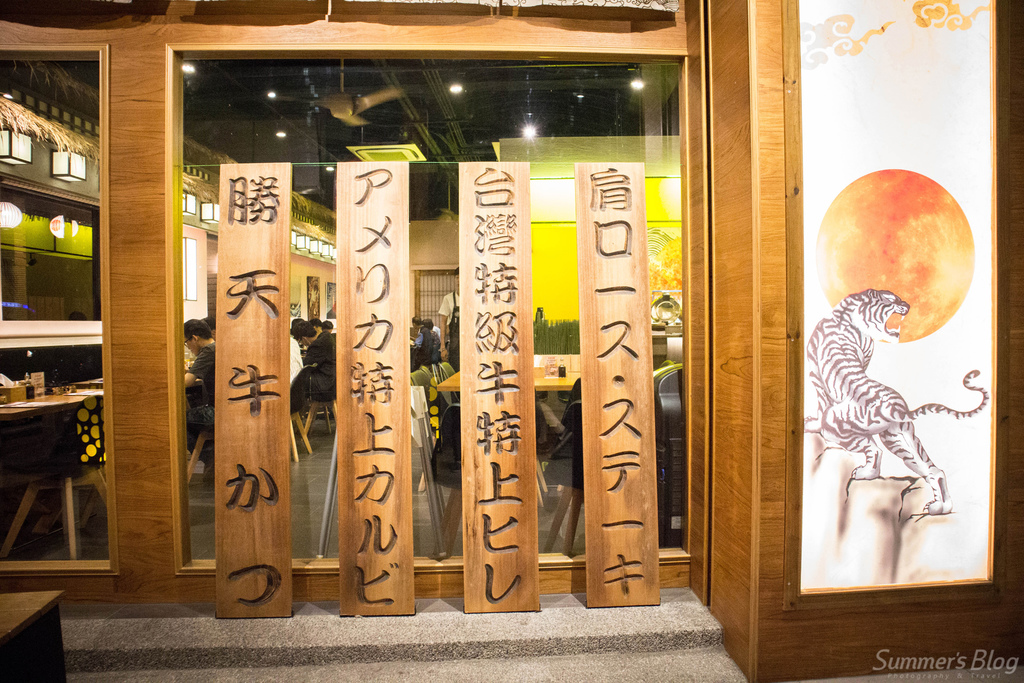 勝天牛かつ
アメリカ特上カルビ
台灣特級牛特上ヒレ
肩ロース・ステーキ
Summer's Blog
Photography & Travel